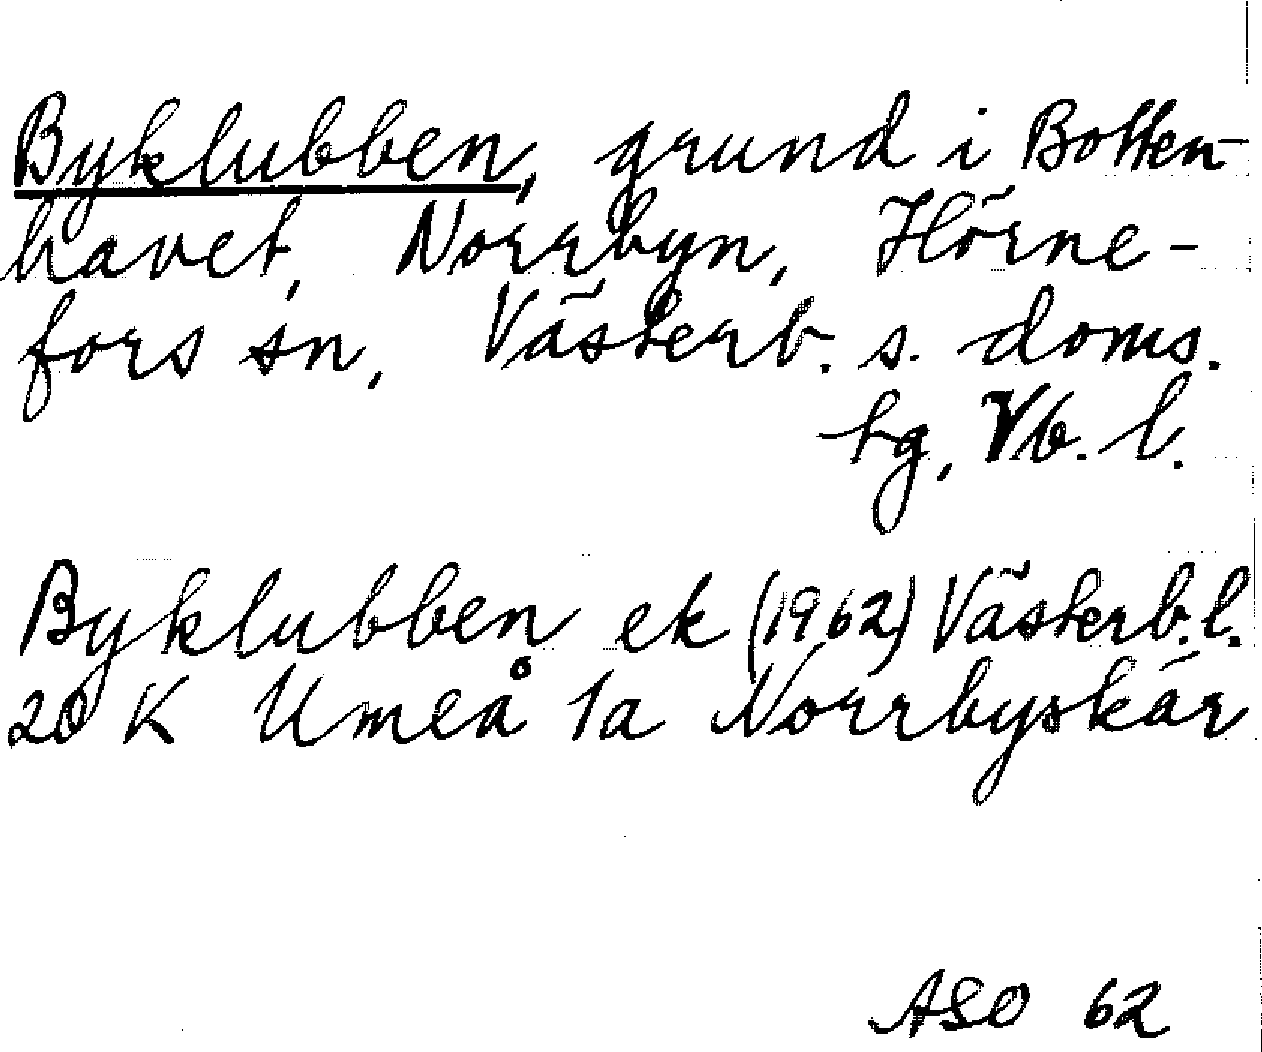 Byklubben, grund i Botten-
havet, Norrbyn, Hörne-
fors sn, Västerb. s. doms.
hg, Vb. l.
Byklubben ek (1962) Västerb. l.
20 K Umeå 1a Norrbyskär
ASO 62